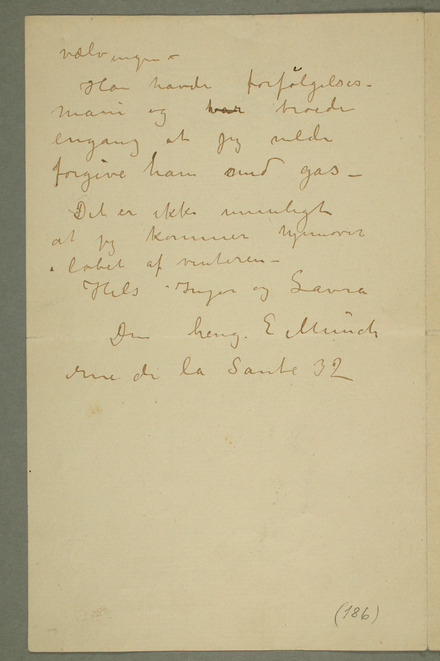 vælvingen –
Han havde forfölgelses-
mani og har troede
engang at jeg vilde
forgive ham med gas –
Det er ikke umuligt
at jeg kommer hjemover
i løbet af vinteren –
Hils Inger og Laura
Din heng. E Munch
rue de la Santé 32
(186)